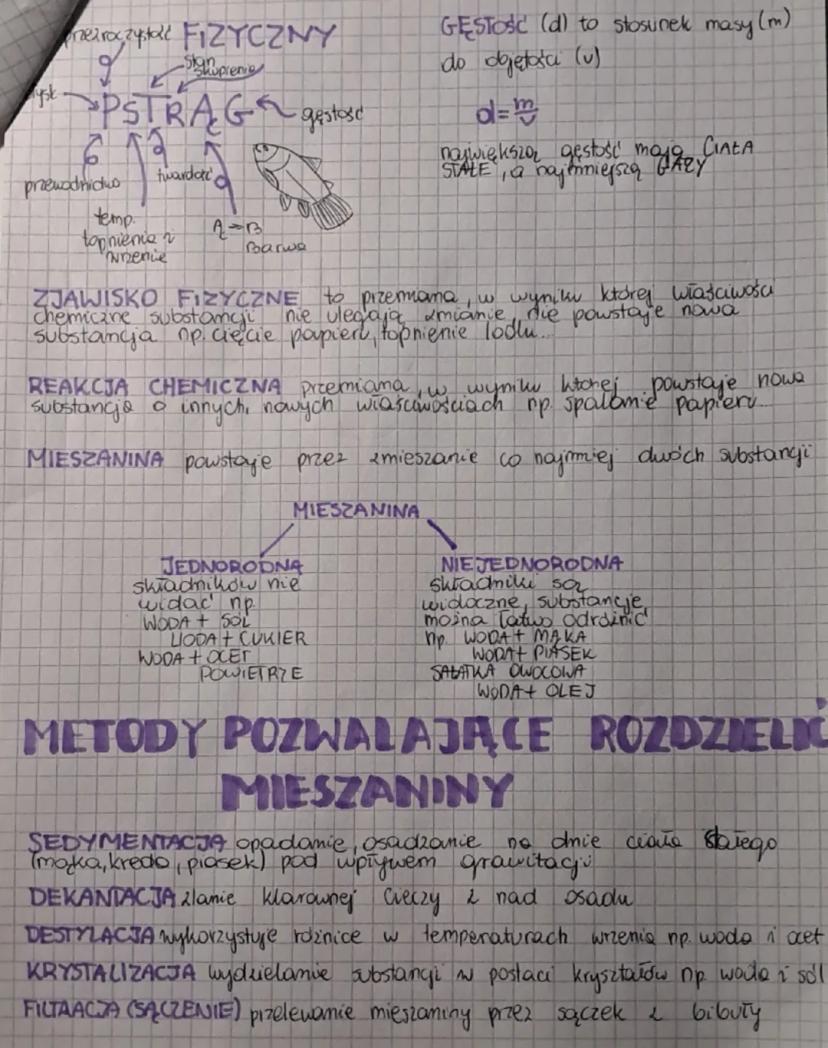 przezroczystość FIZYCZNY
stan
skupienia
PSTRĄG
gęstość
przewodnictwo
twardość
temp.
topnienia i
wrzenie
Ą → B
Barwa
GĘSTOŚĆ (d) to stosunek masy (m)
do objętości (v)
d = m/v
największą gęstość mają CIAŁA
STAŁE, a najmniejszą GAZY
ZJAWISKO FIZYCZNE to przemiana, w wyniku której właściwości
chemiczne substancji nie ulegają zmianie, nie powstaje nowa
substancja np. cięcie papieru, topnienie lodu...
REAKCJA CHEMICZNA przemiana, w wyniku ktorej powstaje nowa
substancja o innych, nowych właściwościach np. spalanie papieru...
MIESZANINA powstaje przez zmieszanie co najmniej dwóch substancji
MIESZANINA
JEDNORODNA
składników nie
widać np.
WODA + SÓL
WODA + CUKIER
WODA + OCET
POWIETRZE
NIEJEDNORODNA
składniki są
widoczne, substancje
można łatwo odróżnić
np. WODA + MĄKA
WODA + PIASEK
SAŁATKA OWOCOWA
WODA + OLEJ
METODY POZWALAJĄCE ROZDZIELIĆ
MIESZANINY
SEDYMENTACJA opadanie, osadzanie na dnie ciała stałego
(mąka, kreda, piasek) pod wpływem grawitacji
DEKANTACJA zlanie klarownej cieczy z nad osadu
DESTYLACJA wykorzystuje różnice w temperaturach wrzenia np. woda i ocet
KRYSTALIZACJA wydzielanie substancji w postaci kryształów np. woda i sól
FILTRACJA (SĄCZENIE) przelewanie mieszaniny przez sączek z bibuły